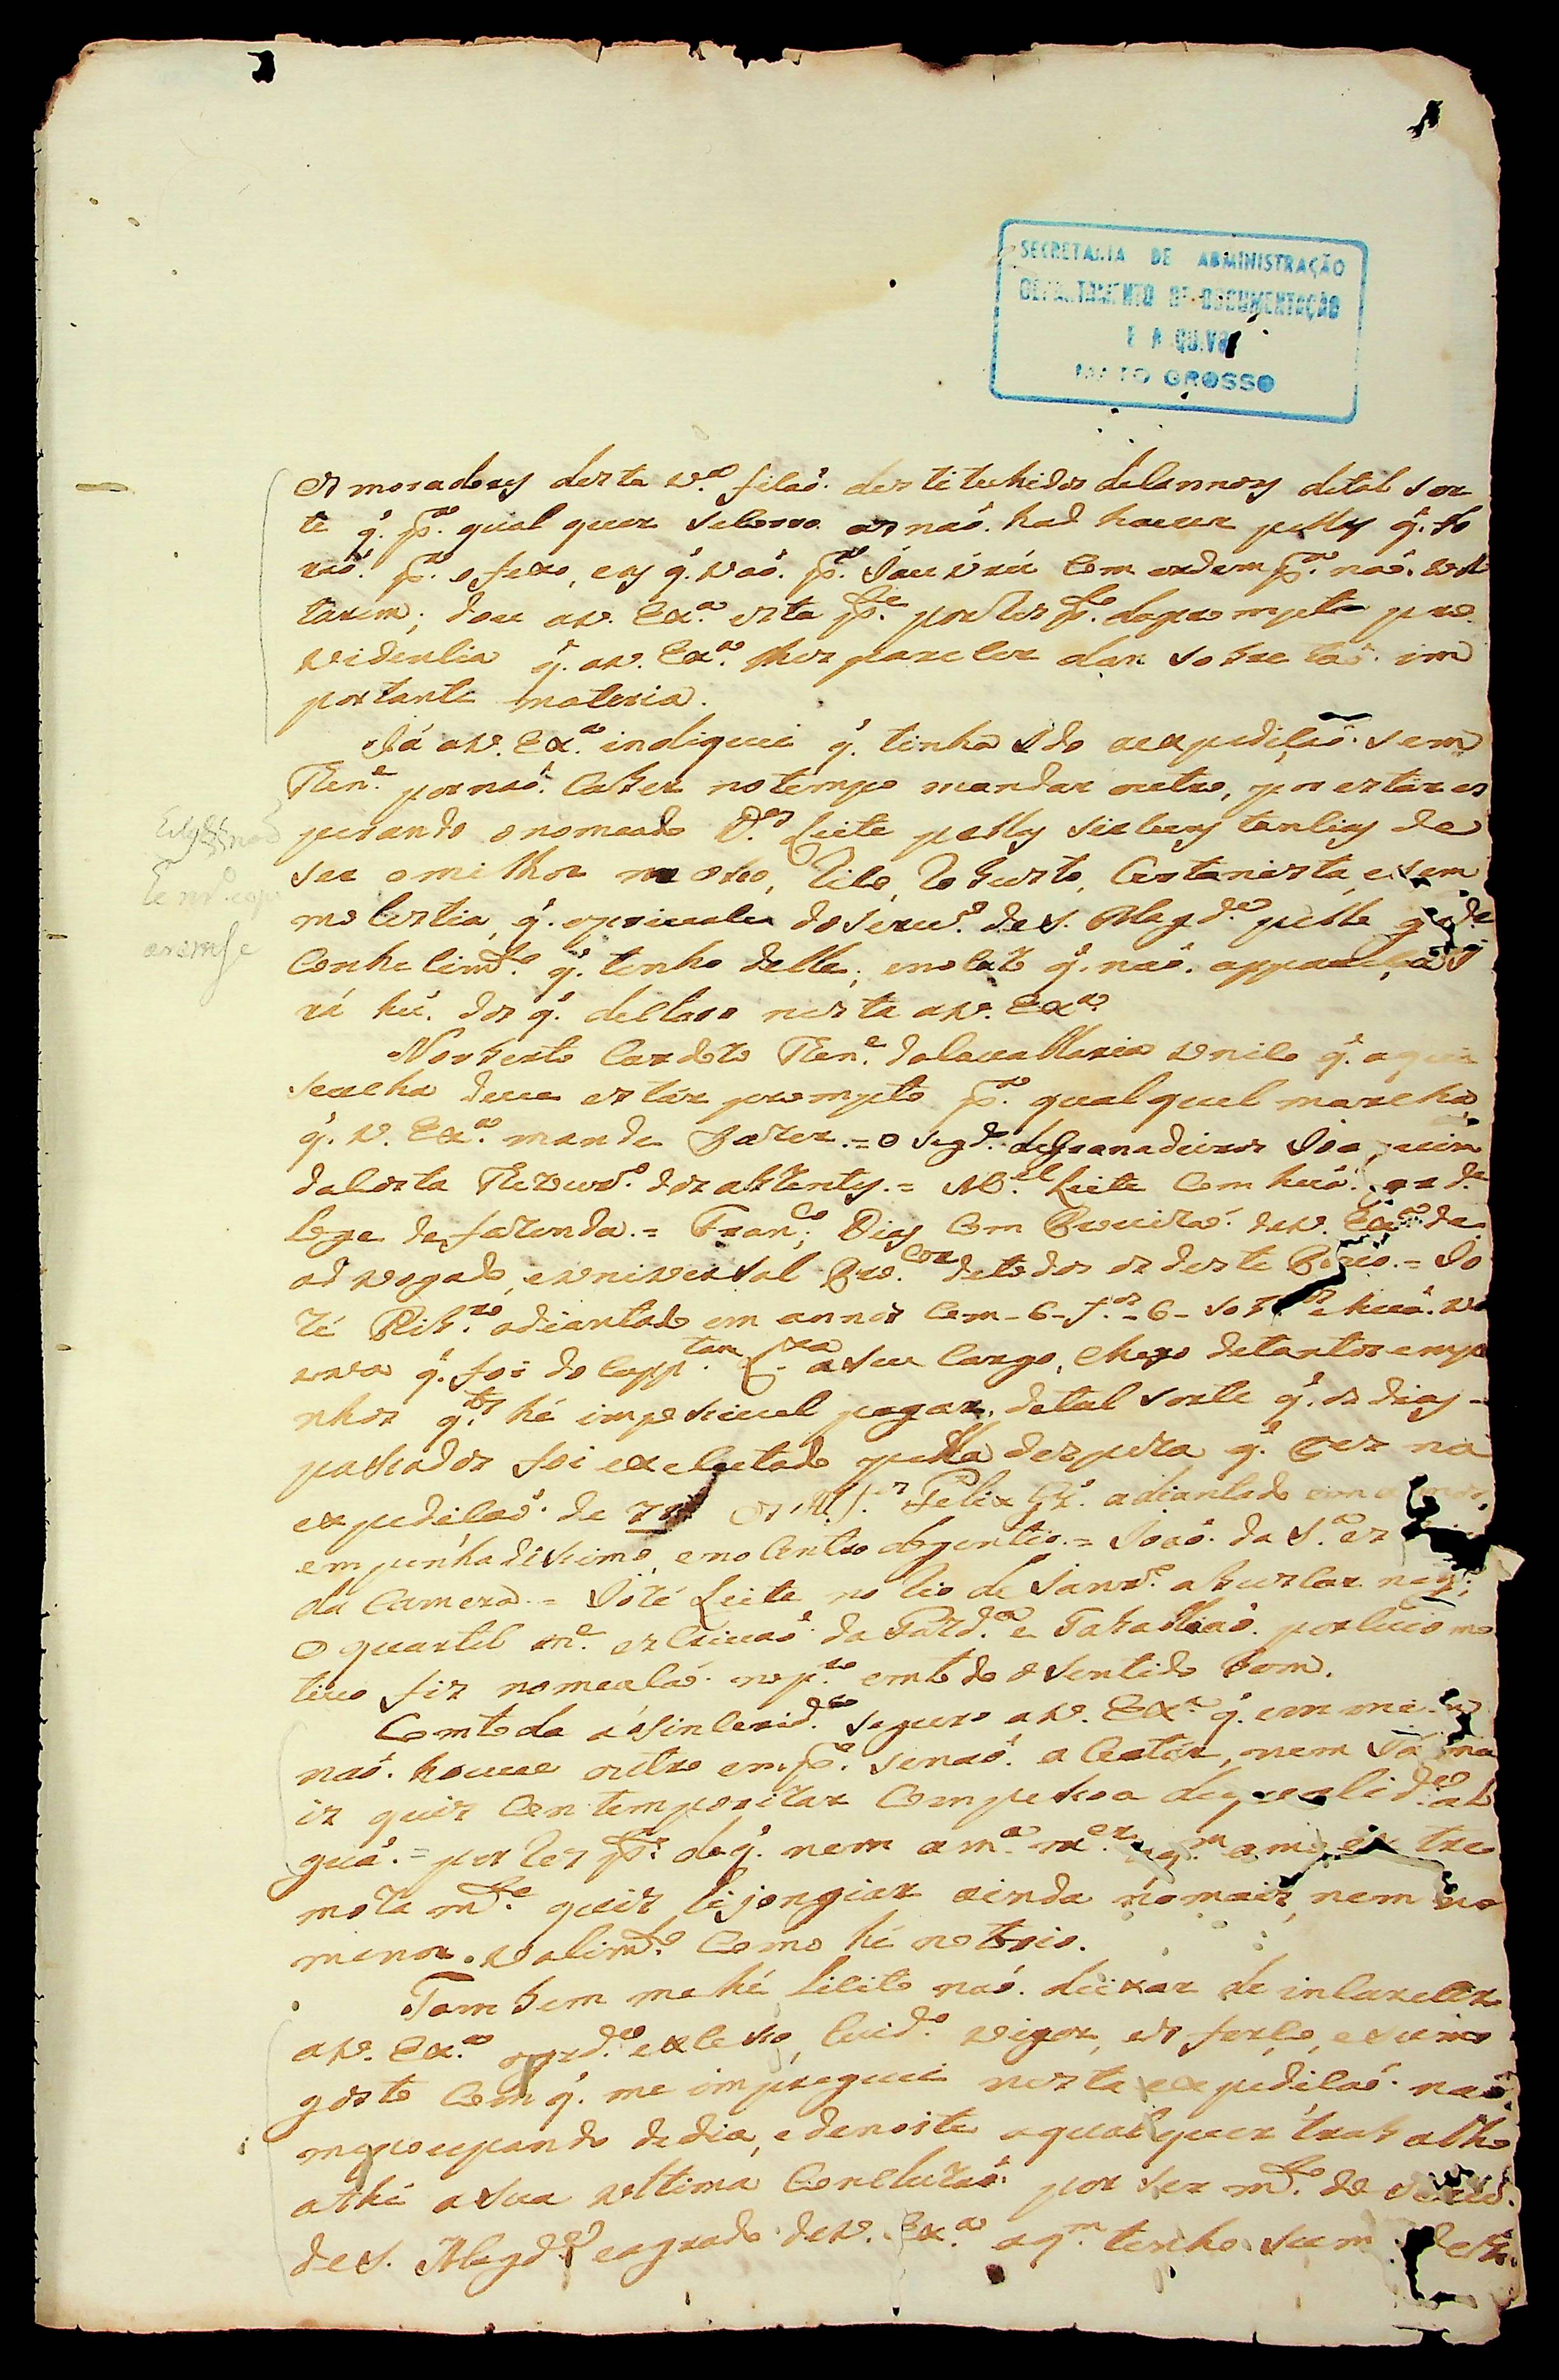 SECRETARIA DE ADMINISTRAÇÃO
DEPARTAMENTO DE DOCUMENTAÇÃO
E ARQUIVO
MATO GROSSO
os moradores desta v.ª ficaõ. destituhidos de cannoas de tal sor
te q̃. p.ª qual quer socorro as naõ. had haver pellas q̃. fo
raõ. p.ª o fexo, e as q̃. vaõ. p.ª Jaurú com ordem p.ª naõ. vol
tarem; dou a V. Ex.ª esta p.te por ter p.te da prompta pro
videncia q̃. a V. Ex.ª lhes parecer dar sobre taõ. im
portante materia.
Já a V. Ex.ª indiquei q̃. tinha ido a expediçaõ. sem
Ten.e por naõ. caber no tempo mandar outro, por estar es
perando o nomeado D.os Leite pellas sircunstancias de
ser o milhor moço, rico, robusto, certanista, e sem
molestia, q̃. o privale do serv.º de S. Mag.de pello g.de
conhecim.to q̃. tenho delle; e no cazo q̃. naõ. appareça, i
rá hũ. dos q̃. declaro nesta a V. Ex.ª
Norberto Cardozo Ten.e da cavallaria unico q̃. aqui
se acha deve estar prompto p.ª qual quel marcha
q̃. V. Ex.ª mande fazer. = o seg.do de Granadeiros Joaquim
da Costa Tezour.º dos abzentes. = M.el Leite com huã. gr.de
loge de fazenda. = Fran.co Dias com Provizaõ. de V. Ex.ª de
advogado, e universal Pro.cor de todos os deste Povo. = Jo
zé Rib.ro adiantado em annos com - 6 - f.os - 6 - sob.os e huã. vi
uva q̃. foi do capp.tam a seu cargo, cheyo de tantos empe
nhos q.tos hé impossivel pagar, de tal sorte q̃. os dias
passados foi executado pella despeza q̃. fez na
expediçaõ. de Felix adiantado em annos,
empenhadissimo, e no centro de gentio. = Joaõ. da S.ª es
da Camera. = Jozé Leite no rio de Janr.º a buscar neg.;
O quartel m.e escrivaõ da Faz.da e Taballiaõ. por cujo mo
tivo fiz nomeacaõ. no p.ro em todo o sentido bom.
Com toda a sincerid.e seguro a V. Ex.ª q̃. em mim
naõ. houve outro emp.º senaõ. acertar, nem já ma
is quis contemporizar com pessoa de qualid.e al
guã. = por ter p.r de q̃. nem a m.ª m.er aq.m amo extre
moza m.te quis lijongiar ainda no mais, nem no
menor valim.to como hé notorio.
Tambem me hé licito naõ. deixar de incarecer
a V. Ex.ª o gr.de excesso, cuid.º vigor, esforço, e sumo
gosto com q̃. me impreguei nesta expediçaõ. naõ
me poupando de dia, e de noite a qual quer trabalho
athé a sua ultima concluzaõ. por ser m.to do serviço.
de S. Mag.de e agrado de V. Ex.ª aq.m tenho sum dezo